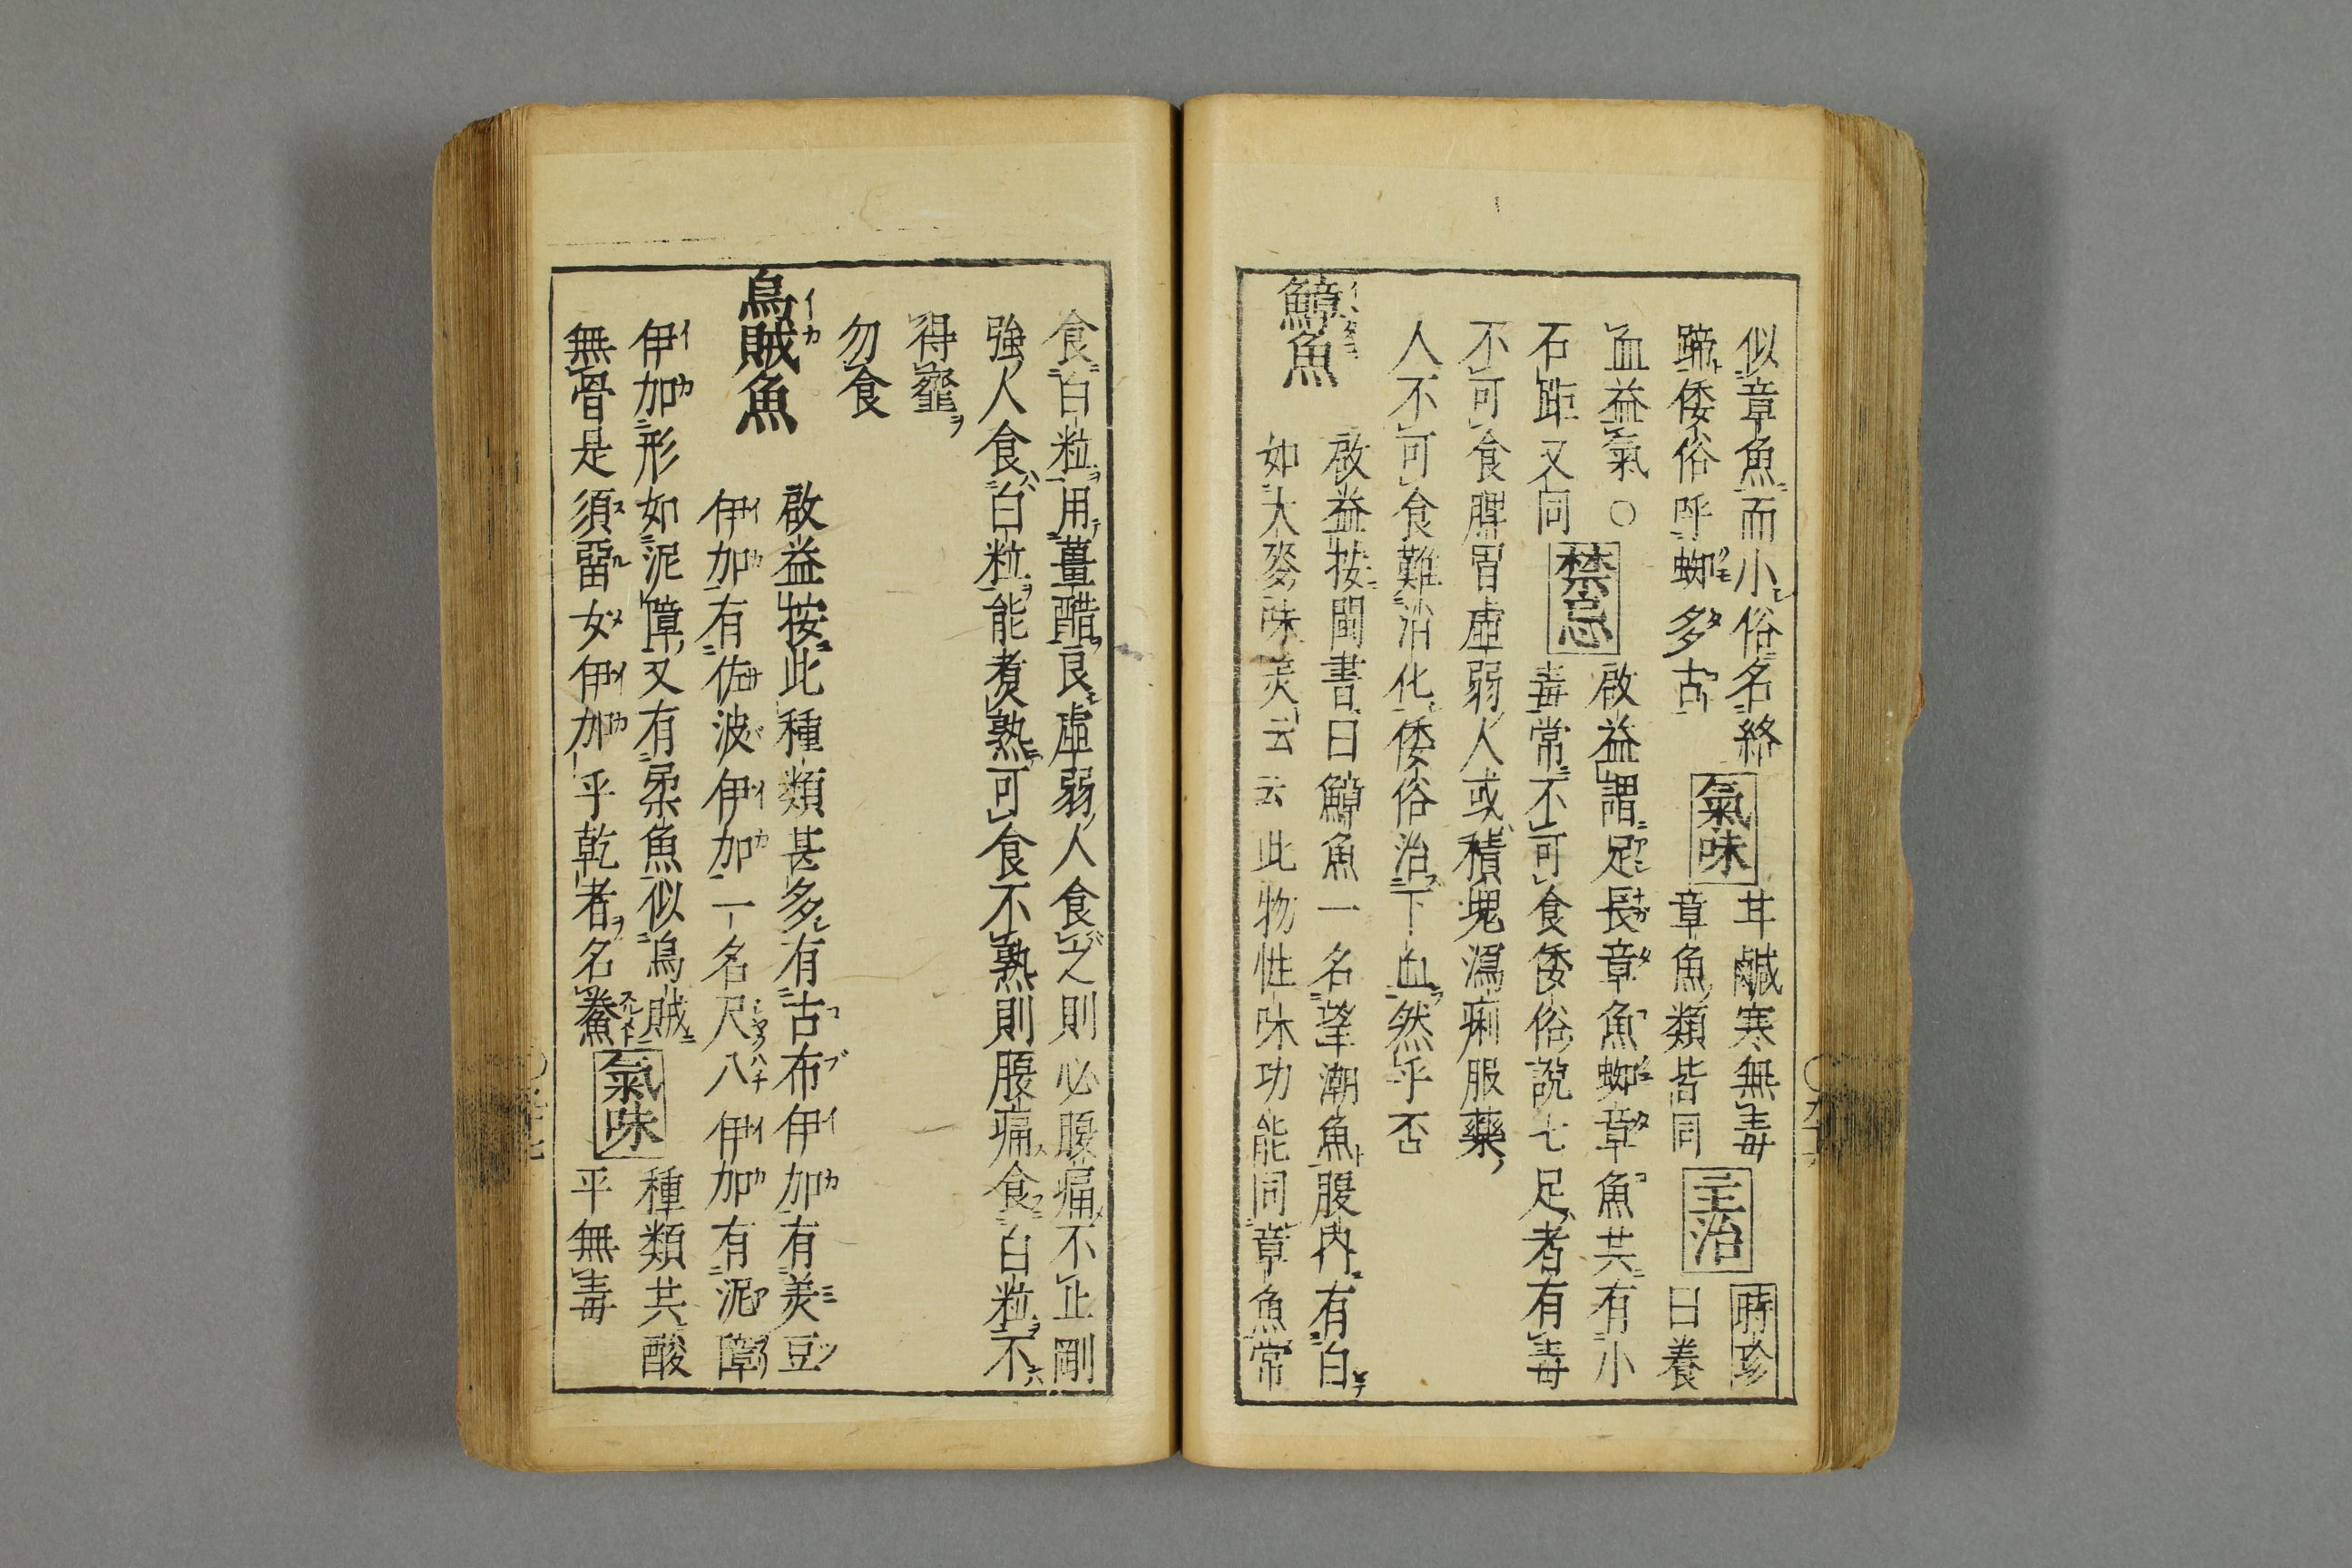 似章魚而小俗名絡
蹄倭俗呼蜘多古 氣味 甘鹹寒無毒 章魚類皆同 主治 時珍曰養
血益氣○ 啟益謂足長章魚蜘章魚共有小
石距又同 禁忌 毒常不可食倭俗說七足者有毒
不可食脾胃虛弱人或積塊瀉痢服藥
人不可食難治化倭俗治下血然乎否
魚 啟益按閩書曰 魚一名望潮魚腹內有白
如大麥味美云云此物性味功能同章魚常
食白粒用薑醋良虛弱人食之則必腹痛不止剛
強人食白粒能煮熟可食不熟則腹痛食白粒不
得 
勿食
イカ
烏賊魚 啟益按此種類甚多有古布伊加有美豆
伊加有佐波伊加一名尺八伊加有泥障
伊加形如泥障又有柔魚似烏賊
無骨是須留女伊加乎乾者名鯗 氣味 種類共酸
平無毒